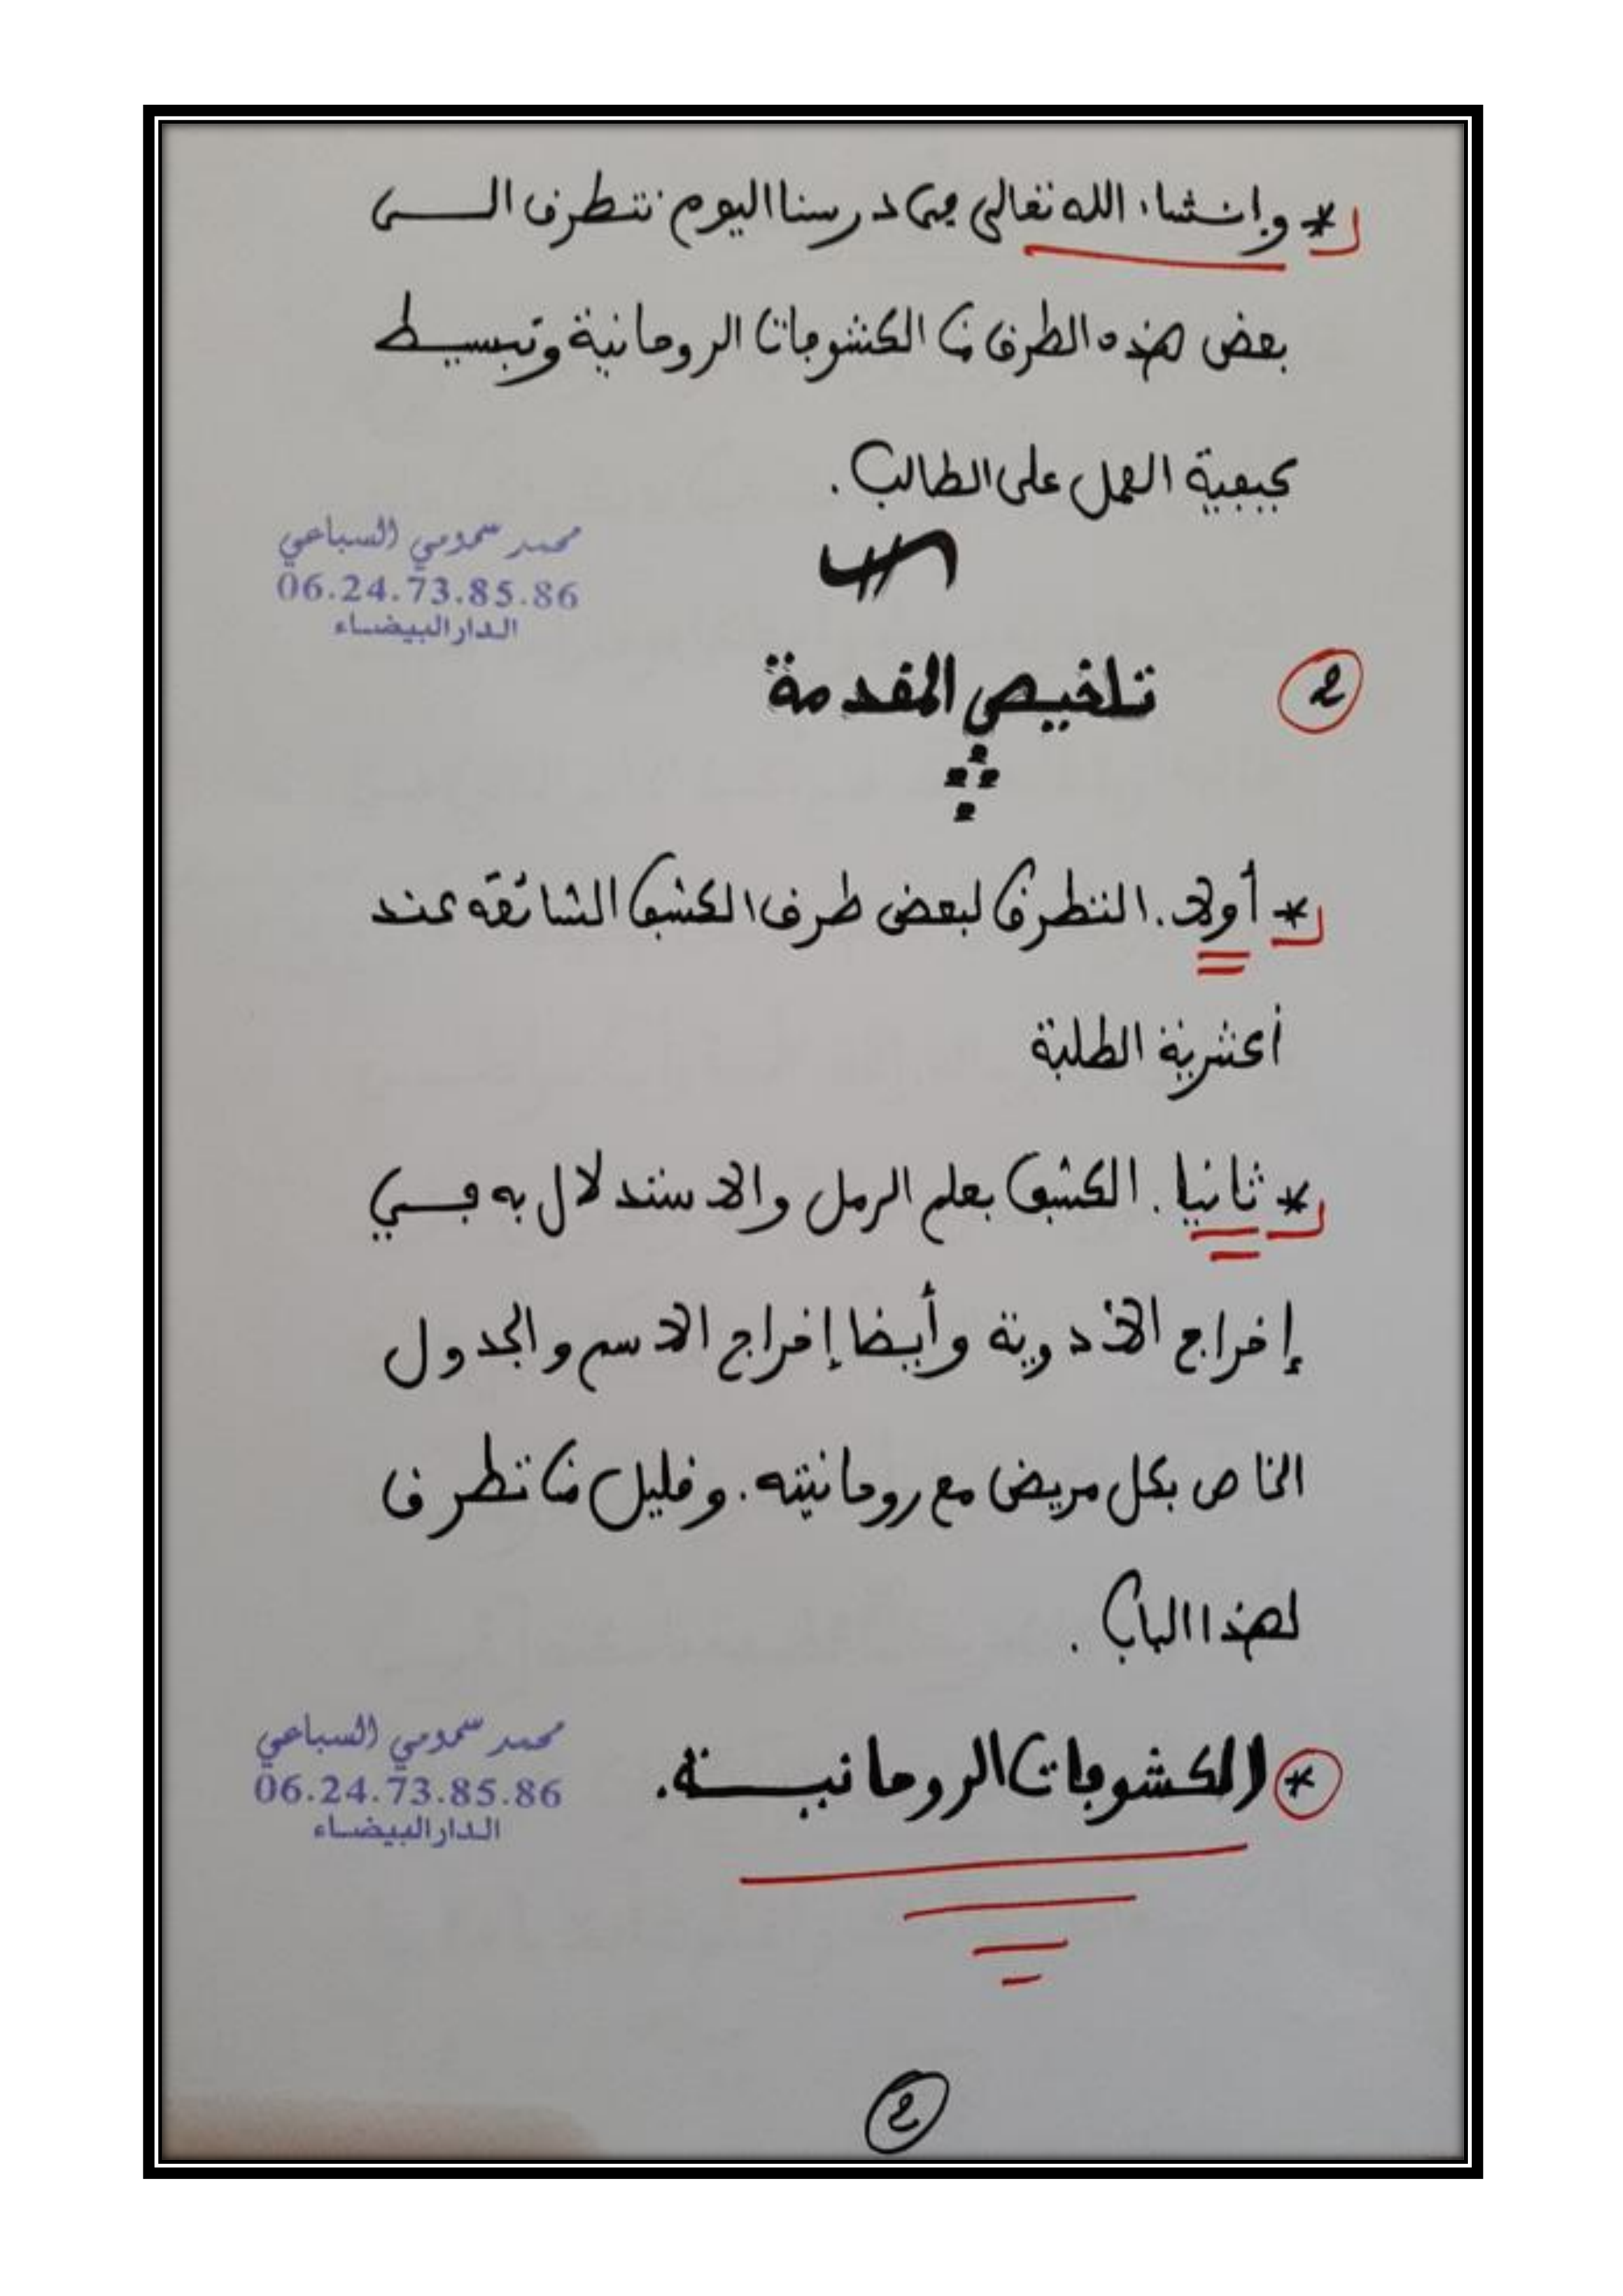 * وإنشاء الله تعالى في درسنا اليوم نتطرق الــى
بعض هذه الطرق من الكشوفات الروحانية وتبسيط
كيفية العمل على الطالب.
محمد سمومي السباعي
06.24.73.85.86
الدار البيضاء
2 تلخيص المقدمة
* أولا. التطرق لبعض طرق الكشف الشائعة عند
أكثرية الطلبة
* ثانيا. الكشف بعلم الرمل والاستدلال به فــي
إخراج الأدوية وأيضا إخراج الاسم والجدول
الخاص بكل مريض مع روحانيته. وقليل من تطرق
لهذا الباب.
* الكشوفات الروحانيــة.
محمد سمومي السباعي
06.24.73.85.86
الدار البيضاء
2